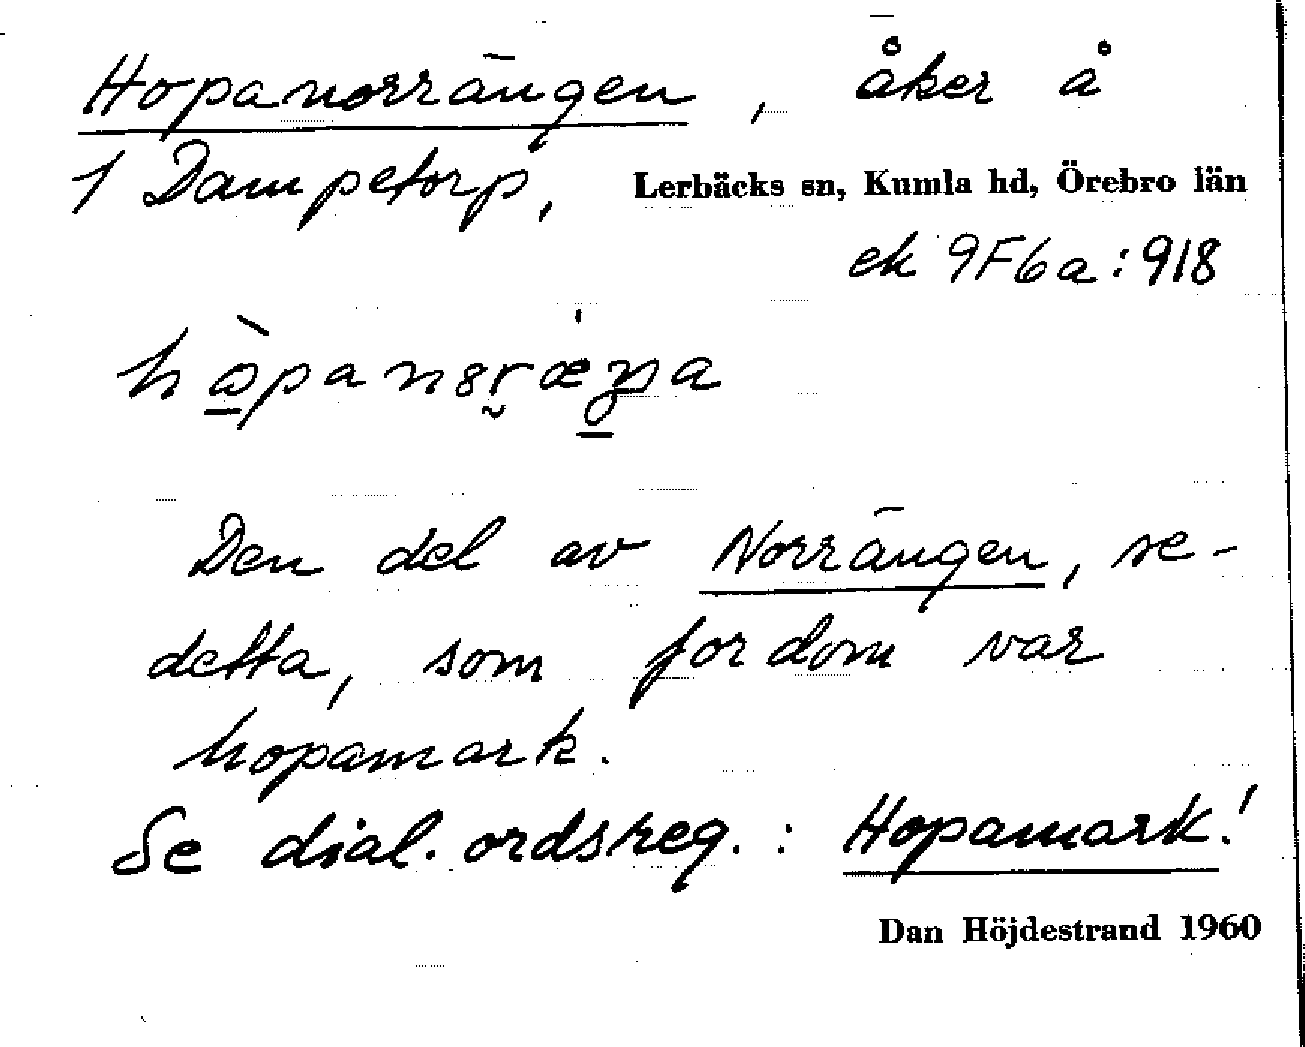 Hopanorrängen, åker å
1 Dampetorp, Lerbäcks sn, Kumla hd, Örebro län
ek 9F6a:918
Den del av Norrängen, se-
detta, som fordom var
hopamark.
Se dial. ordsreg.: Hopamark!
Dan Höjdestrand 1960